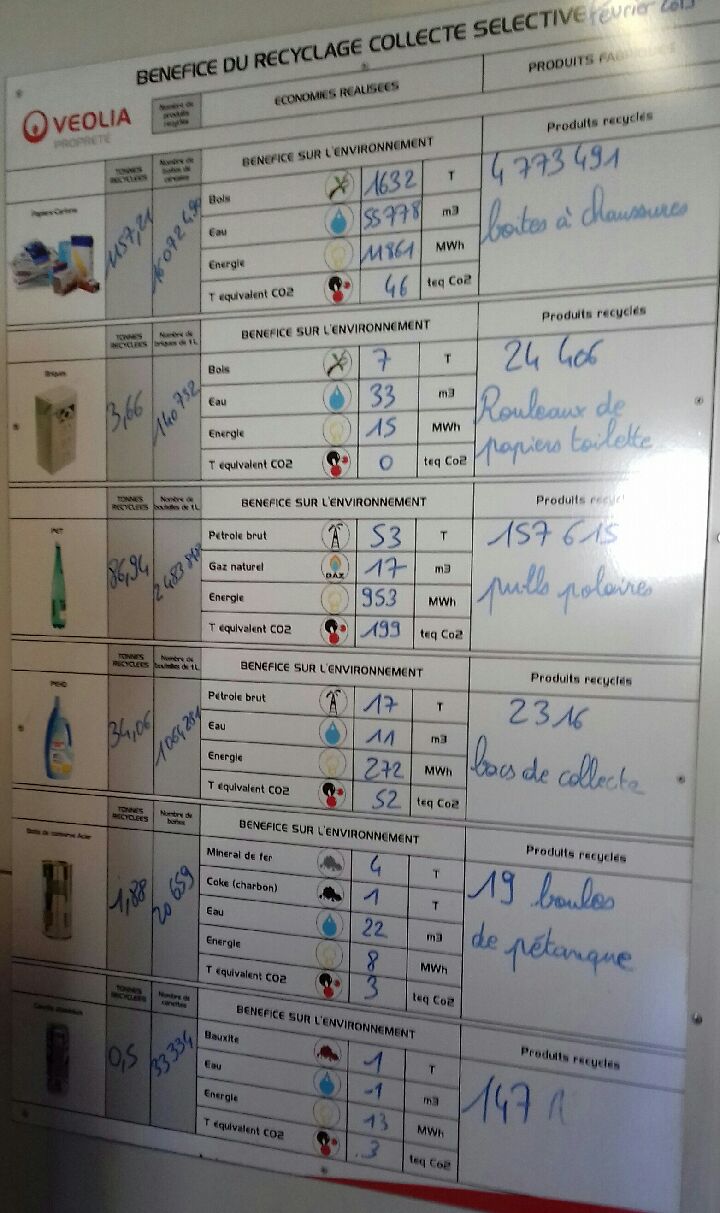 BENEFICE DU RECYCLAGE COLLECTE SELECTIVE février
VEOLIA
PROPRETÉ
Nombre de produits recyclés
ECONOMIES REALISEES
PRODUITS
TONNES RECYCLEES
Nombre de boîtes de céréales
BENEFICE SUR L'ENVIRONNEMENT
Produits recyclés
Papiers-Cartons
1157,21
Bois 1632 T
Eau 55778 m3
Energie 11861 MWh
T équivalent CO2 46 teq Co2
4 773 491
boites à chaussures
TONNES RECYCLEES
Nombre de briques de 1 L
BENEFICE SUR L'ENVIRONNEMENT
Produits recyclés
Briques
3,66
140 792
Bois 7 T
Eau 33 m3
Energie 15 MWh
T équivalent CO2 0 teq Co2
24 406
Rouleaux de
papiers toilette
TONNES RECYCLEES
Nombre de bouteilles de 1 L
BENEFICE SUR L'ENVIRONNEMENT
Produits
PET
86,94
Pétrole brut 53 T
Gaz naturel GAZ 17 m3
Energie 953 MWh
T équivalent CO2 199 teq Co2
157 615
pulls polaires
TONNES RECYCLEES
Nombre de bouteilles de 1 L
BENEFICE SUR L'ENVIRONNEMENT
Produits recyclés
PEHD
34,06
1 064 281
Pétrole brut 17 T
Eau 11 m3
Energie 272 MWh
T équivalent CO2 52 teq Co2
2316
bacs de collecte
TONNES RECYCLEES
Nombre de boîtes
BENEFICE SUR L'ENVIRONNEMENT
Produits recyclés
Boîte de conserve Acier
1,88
20 659
Minerai de fer 4 T
Coke (charbon) 1 T
Eau 22 m3
Energie 8 MWh
T équivalent CO2 3 teq Co2
19 boules
de pétanque
TONNES RECYCLEES
Nombre de canettes
BENEFICE SUR L'ENVIRONNEMENT
Produits recyclés
0,5
33 334
Bauxite 1 T
Eau 1 m3
Energie 13 MWh
T équivalent CO2 3 teq Co2
147